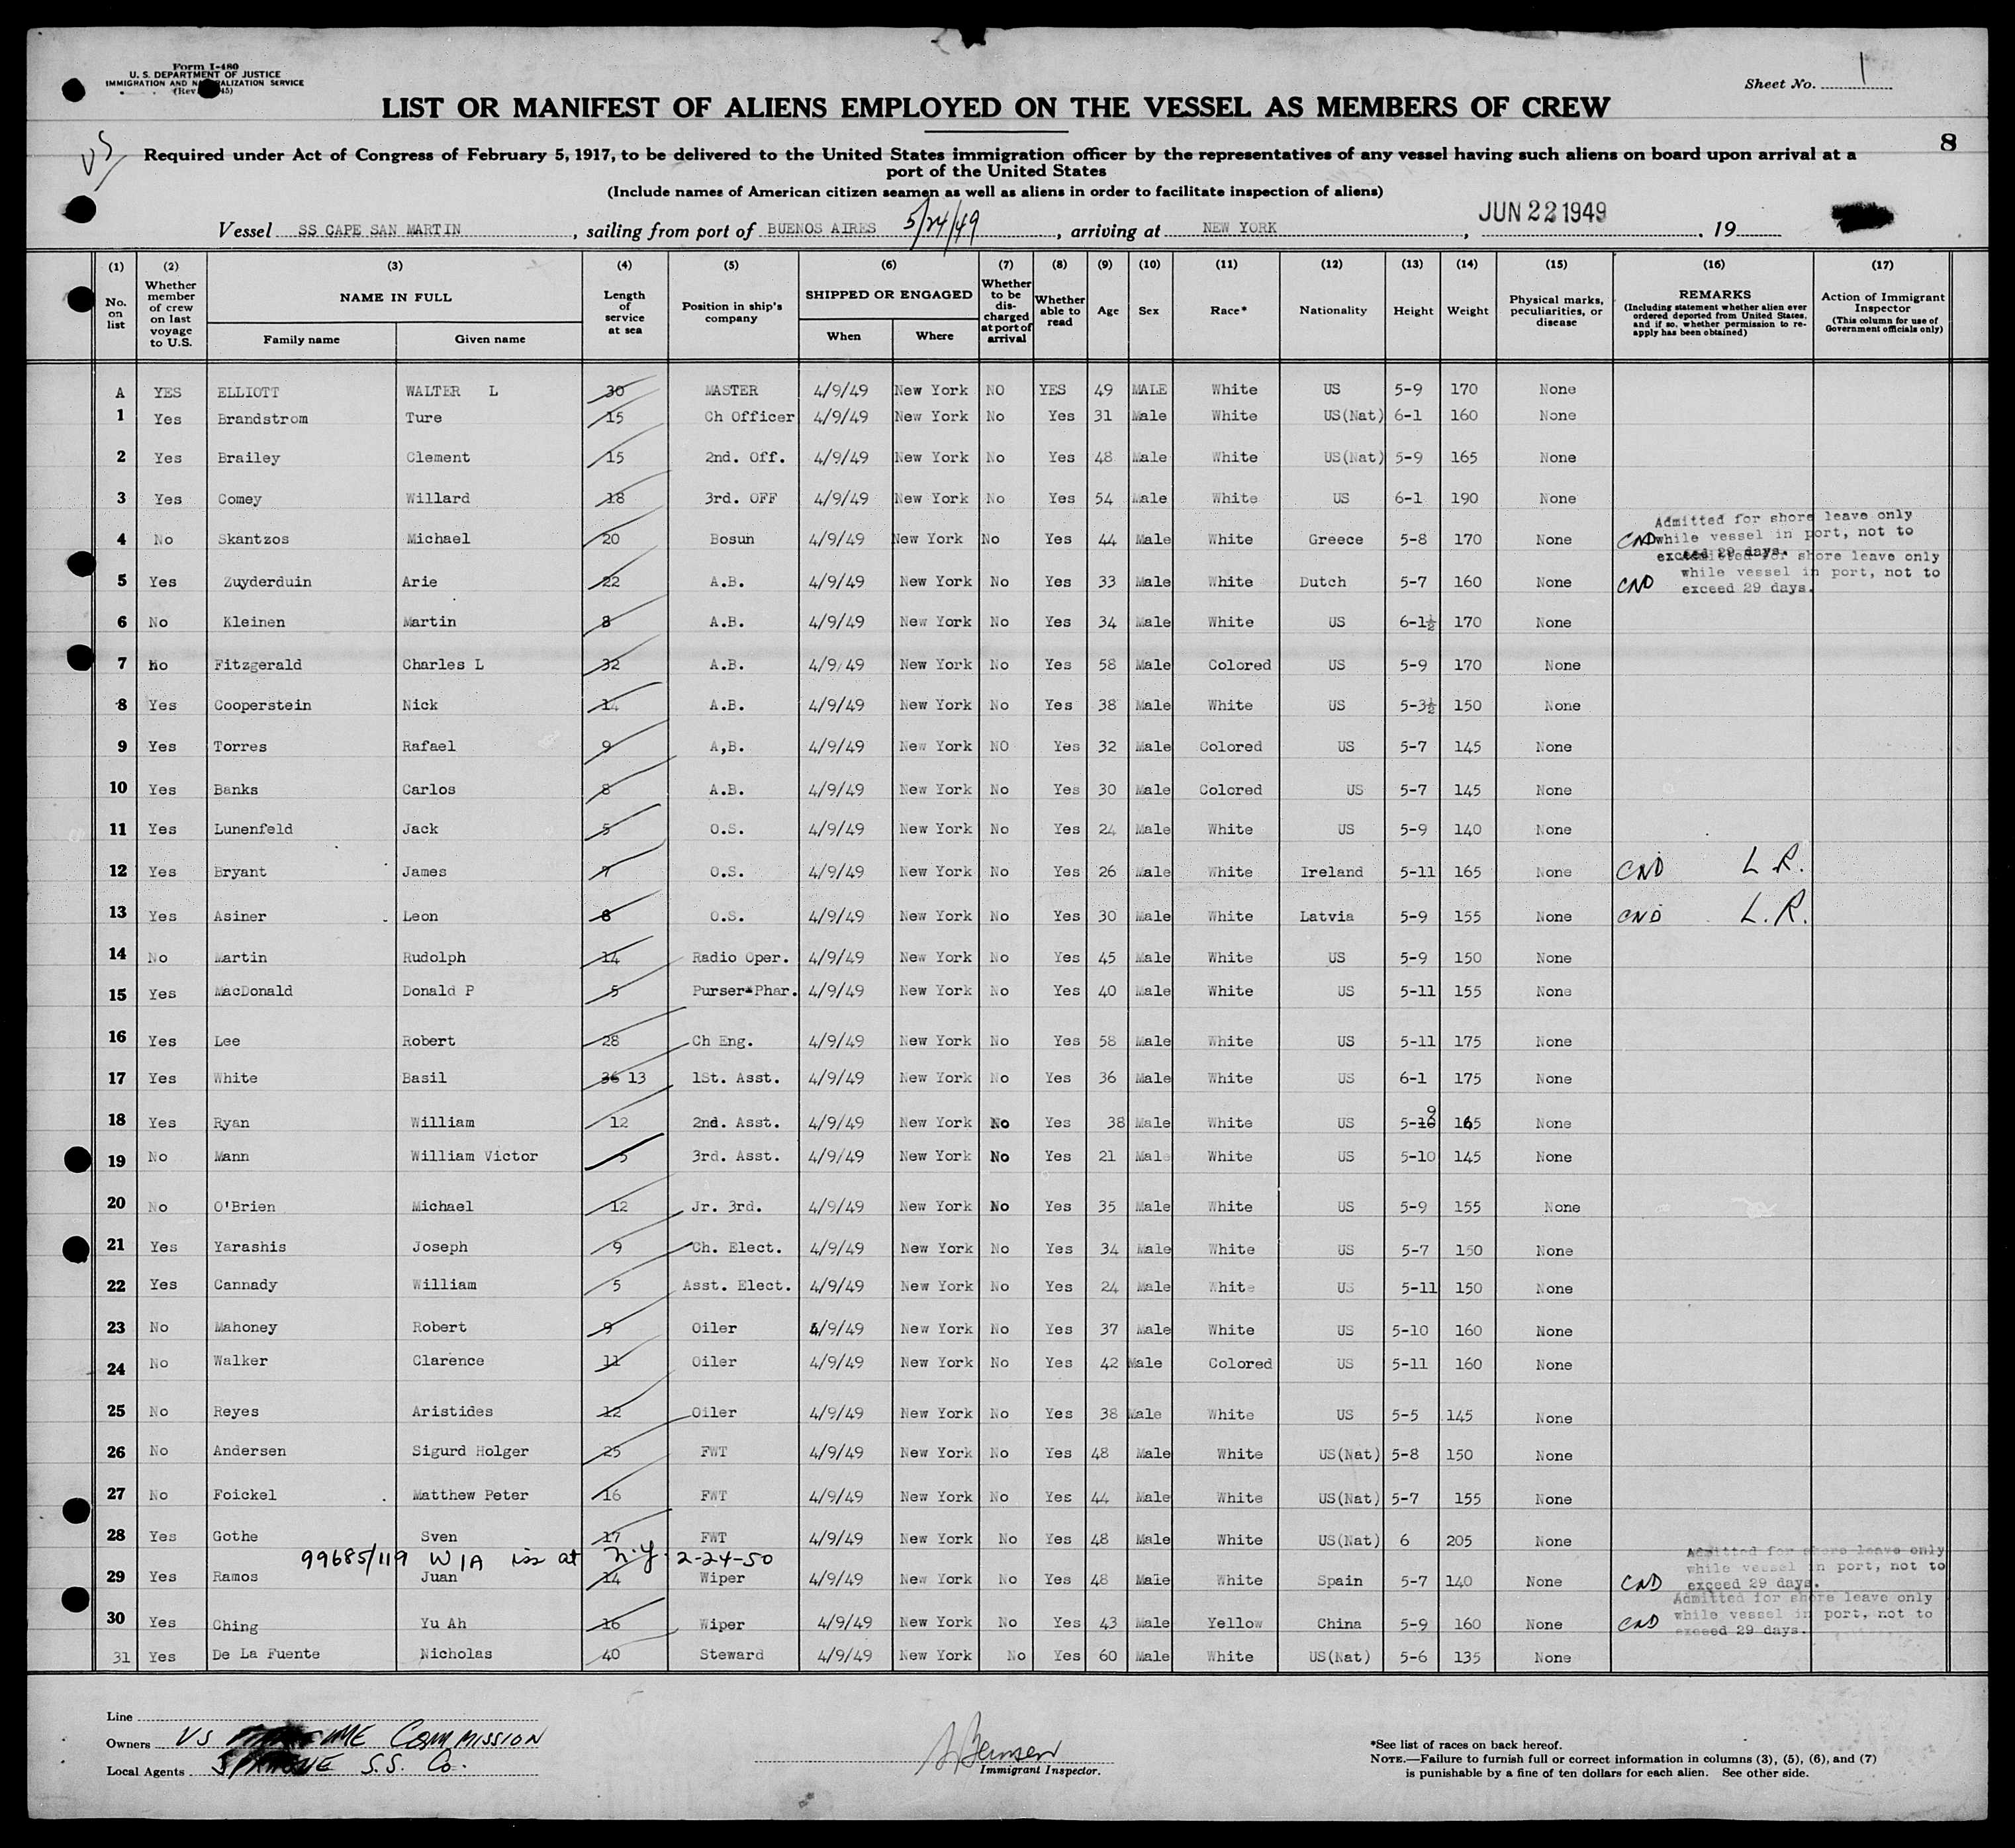 Form I-480
U. S. DEPARTMENT OF JUSTICE
IMMIGRATION AND NATURALIZATION SERVICE
(Rev. 45)
Sheet No. 1
LIST OR MANIFEST OF ALIENS EMPLOYED ON THE VESSEL AS MEMBERS OF CREW
8
US
Required under Act of Congress of February 5, 1917, to be delivered to the United States immigration officer by the representatives of any vessel having such aliens on board upon arrival at a
port of the United States
(Include names of American citizen seamen as well as aliens in order to facilitate inspection of aliens)
Vessel SS CAPE SAN MARTIN, sailing from port of BUENOS AIRES 5/24/49, arriving at NEW YORK, JUN 22 1949, 19
(1) (2) (3) (4) (5) (6) (7) (8) (9) (10) (11) (12) (13) (14) (15) (16) (17)
No. on list
Whether member of crew on last voyage to U.S.
NAME IN FULL
Family name
Given name
Length of service at sea
Position in ship's company
SHIPPED OR ENGAGED
When
Where
Whether to be discharged at port of arrival
Whether able to read
Age
Sex
Race*
Nationality
Height
Weight
Physical marks, peculiarities, or disease
REMARKS
(Including statement whether alien ever ordered deported from United States, and if so, whether permission to reapply has been obtained)
Action of Immigrant Inspector
(This column for use of Government officials only)
A YES ELLIOTT WALTER L 30 MASTER 4/9/49 New York NO YES 49 MALE White US 5-9 170 None
1 Yes Brandstrom Ture 15 Ch Officer 4/9/49 New York No Yes 31 Male White US(Nat) 6-1 160 None
2 Yes Brailey Clement 15 2nd. Off. 4/9/49 New York No Yes 48 Male White US(Nat) 5-9 165 None
3 Yes Comey Willard 18 3rd. OFF 4/9/49 New York No Yes 54 Male White US 6-1 190 None
4 No Skantzos Michael 20 Bosun 4/9/49 New York No Yes 44 Male White Greece 5-8 170 None CND Admitted for shore leave only while vessel in port, not to exceed 29 days.
5 Yes Zuyderduin Arie 22 A.B. 4/9/49 New York No Yes 33 Male White Dutch 5-7 160 None CND Admitted for shore leave only while vessel in port, not to exceed 29 days.
6 No Kleinen Martin 8 A.B. 4/9/49 New York No Yes 34 Male White US 6-1½ 170 None
7 No Fitzgerald Charles L 32 A.B. 4/9/49 New York No Yes 58 Male Colored US 5-9 170 None
8 Yes Cooperstein Nick 14 A.B. 4/9/49 New York No Yes 38 Male White US 5-3½ 150 None
9 Yes Torres Rafael 9 A,B. 4/9/49 New York NO Yes 32 Male Colored US 5-7 145 None
10 Yes Banks Carlos 8 A.B. 4/9/49 New York No Yes 30 Male Colored US 5-7 145 None
11 Yes Lunenfeld Jack 5 O.S. 4/9/49 New York No Yes 24 Male White US 5-9 140 None
12 Yes Bryant James 7 O.S. 4/9/49 New York No Yes 26 Male White Ireland 5-11 165 None CND L.R.
13 Yes Asiner Leon 8 O.S. 4/9/49 New York No Yes 30 Male White Latvia 5-9 155 None CND L.R.
14 No Martin Rudolph 14 Radio Oper. 4/9/49 New York No Yes 45 Male White US 5-9 150 None
15 Yes MacDonald Donald P 5 Purser-Phar. 4/9/49 New York No Yes 40 Male White US 5-11 155 None
16 Yes Lee Robert 28 Ch Eng. 4/9/49 New York No Yes 58 Male White US 5-11 175 None
17 Yes White Basil 36 13 1St. Asst. 4/9/49 New York No Yes 36 Male White US 6-1 175 None
18 Yes Ryan William 12 2nd. Asst. 4/9/49 New York No Yes 38 Male White US 5-10 9 165 None
19 No Mann William Victor 5 3rd. Asst. 4/9/49 New York No Yes 21 Male White US 5-10 145 None
20 No O'Brien Michael 12 Jr. 3rd. 4/9/49 New York No Yes 35 Male White US 5-9 155 None
21 Yes Yarashis Joseph 9 Ch. Elect. 4/9/49 New York No Yes 34 Male White US 5-7 150 None
22 Yes Cannady William 5 Asst. Elect. 4/9/49 New York No Yes 24 Male White US 5-11 150 None
23 No Mahoney Robert 9 Oiler 4/9/49 New York No Yes 37 Male White US 5-10 160 None
24 No Walker Clarence 11 Oiler 4/9/49 New York No Yes 42 Male Colored US 5-11 160 None
25 No Reyes Aristides 12 Oiler 4/9/49 New York No Yes 38 Male White US 5-5 145 None
26 No Andersen Sigurd Holger 25 FWT 4/9/49 New York No Yes 48 Male White US(Nat) 5-8 150 None
27 No Foickel Matthew Peter 16 FWT 4/9/49 New York No Yes 44 Male White US(Nat) 5-7 155 None
28 Yes Gothe Sven 17 FWT 4/9/49 New York No Yes 48 Male White US(Nat) 6 205 None
99685/119 W/A iss at N.Y. 2-24-50
29 Yes Ramos Juan 14 Wiper 4/9/49 New York No Yes 48 Male White Spain 5-7 140 None CND Admitted for shore leave only while vessel in port, not to exceed 29 days.
30 Yes Ching Yu Ah 16 Wiper 4/9/49 New York No Yes 43 Male Yellow China 5-9 160 None CND Admitted for shore leave only while vessel in port, not to exceed 29 days.
31 Yes De La Fuente Nicholas 40 Steward 4/9/49 New York No Yes 60 Male White US(Nat) 5-6 135 None
Line
Owners US COMMISSION
Local Agents S.S. Co.
Immigrant Inspector.
*See list of races on back hereof.
NOTE.—Failure to furnish full or correct information in columns (3), (5), (6), and (7)
is punishable by a fine of ten dollars for each alien. See other side.